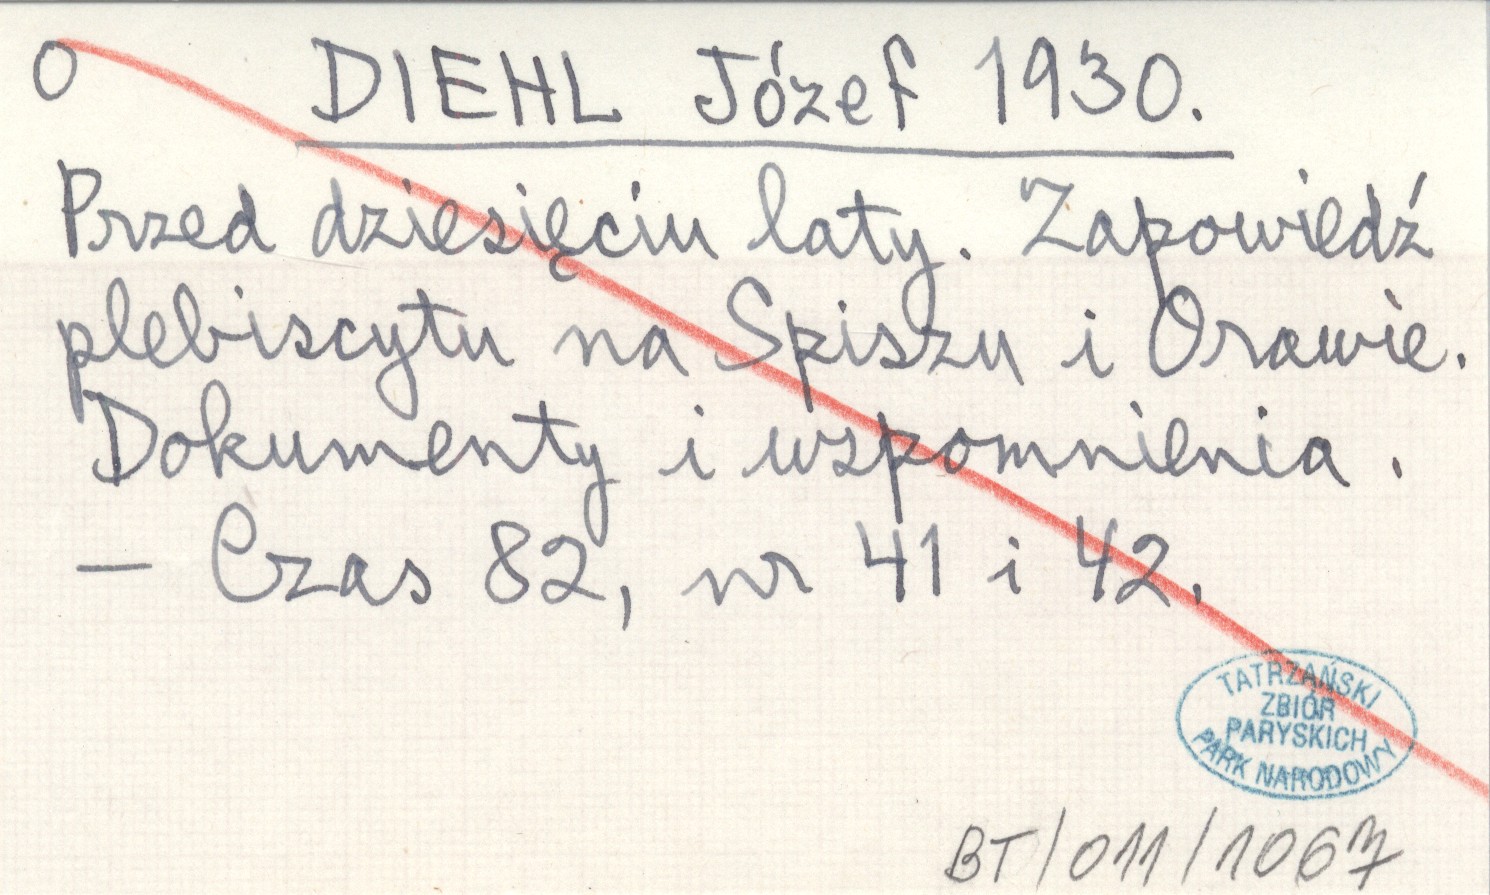 O DIEHL Józef 1930.
Przed dziesięciu laty. Zapowiedź
plebiscytu na Spiszu i Orawie.
Dokumenty i wspomnienia.
— Czas 82, nr 41 i 42.
TATRZAŃSKI
ZBIÓR
PARYSKICH
PARK NARODOWY
BT/011/1067